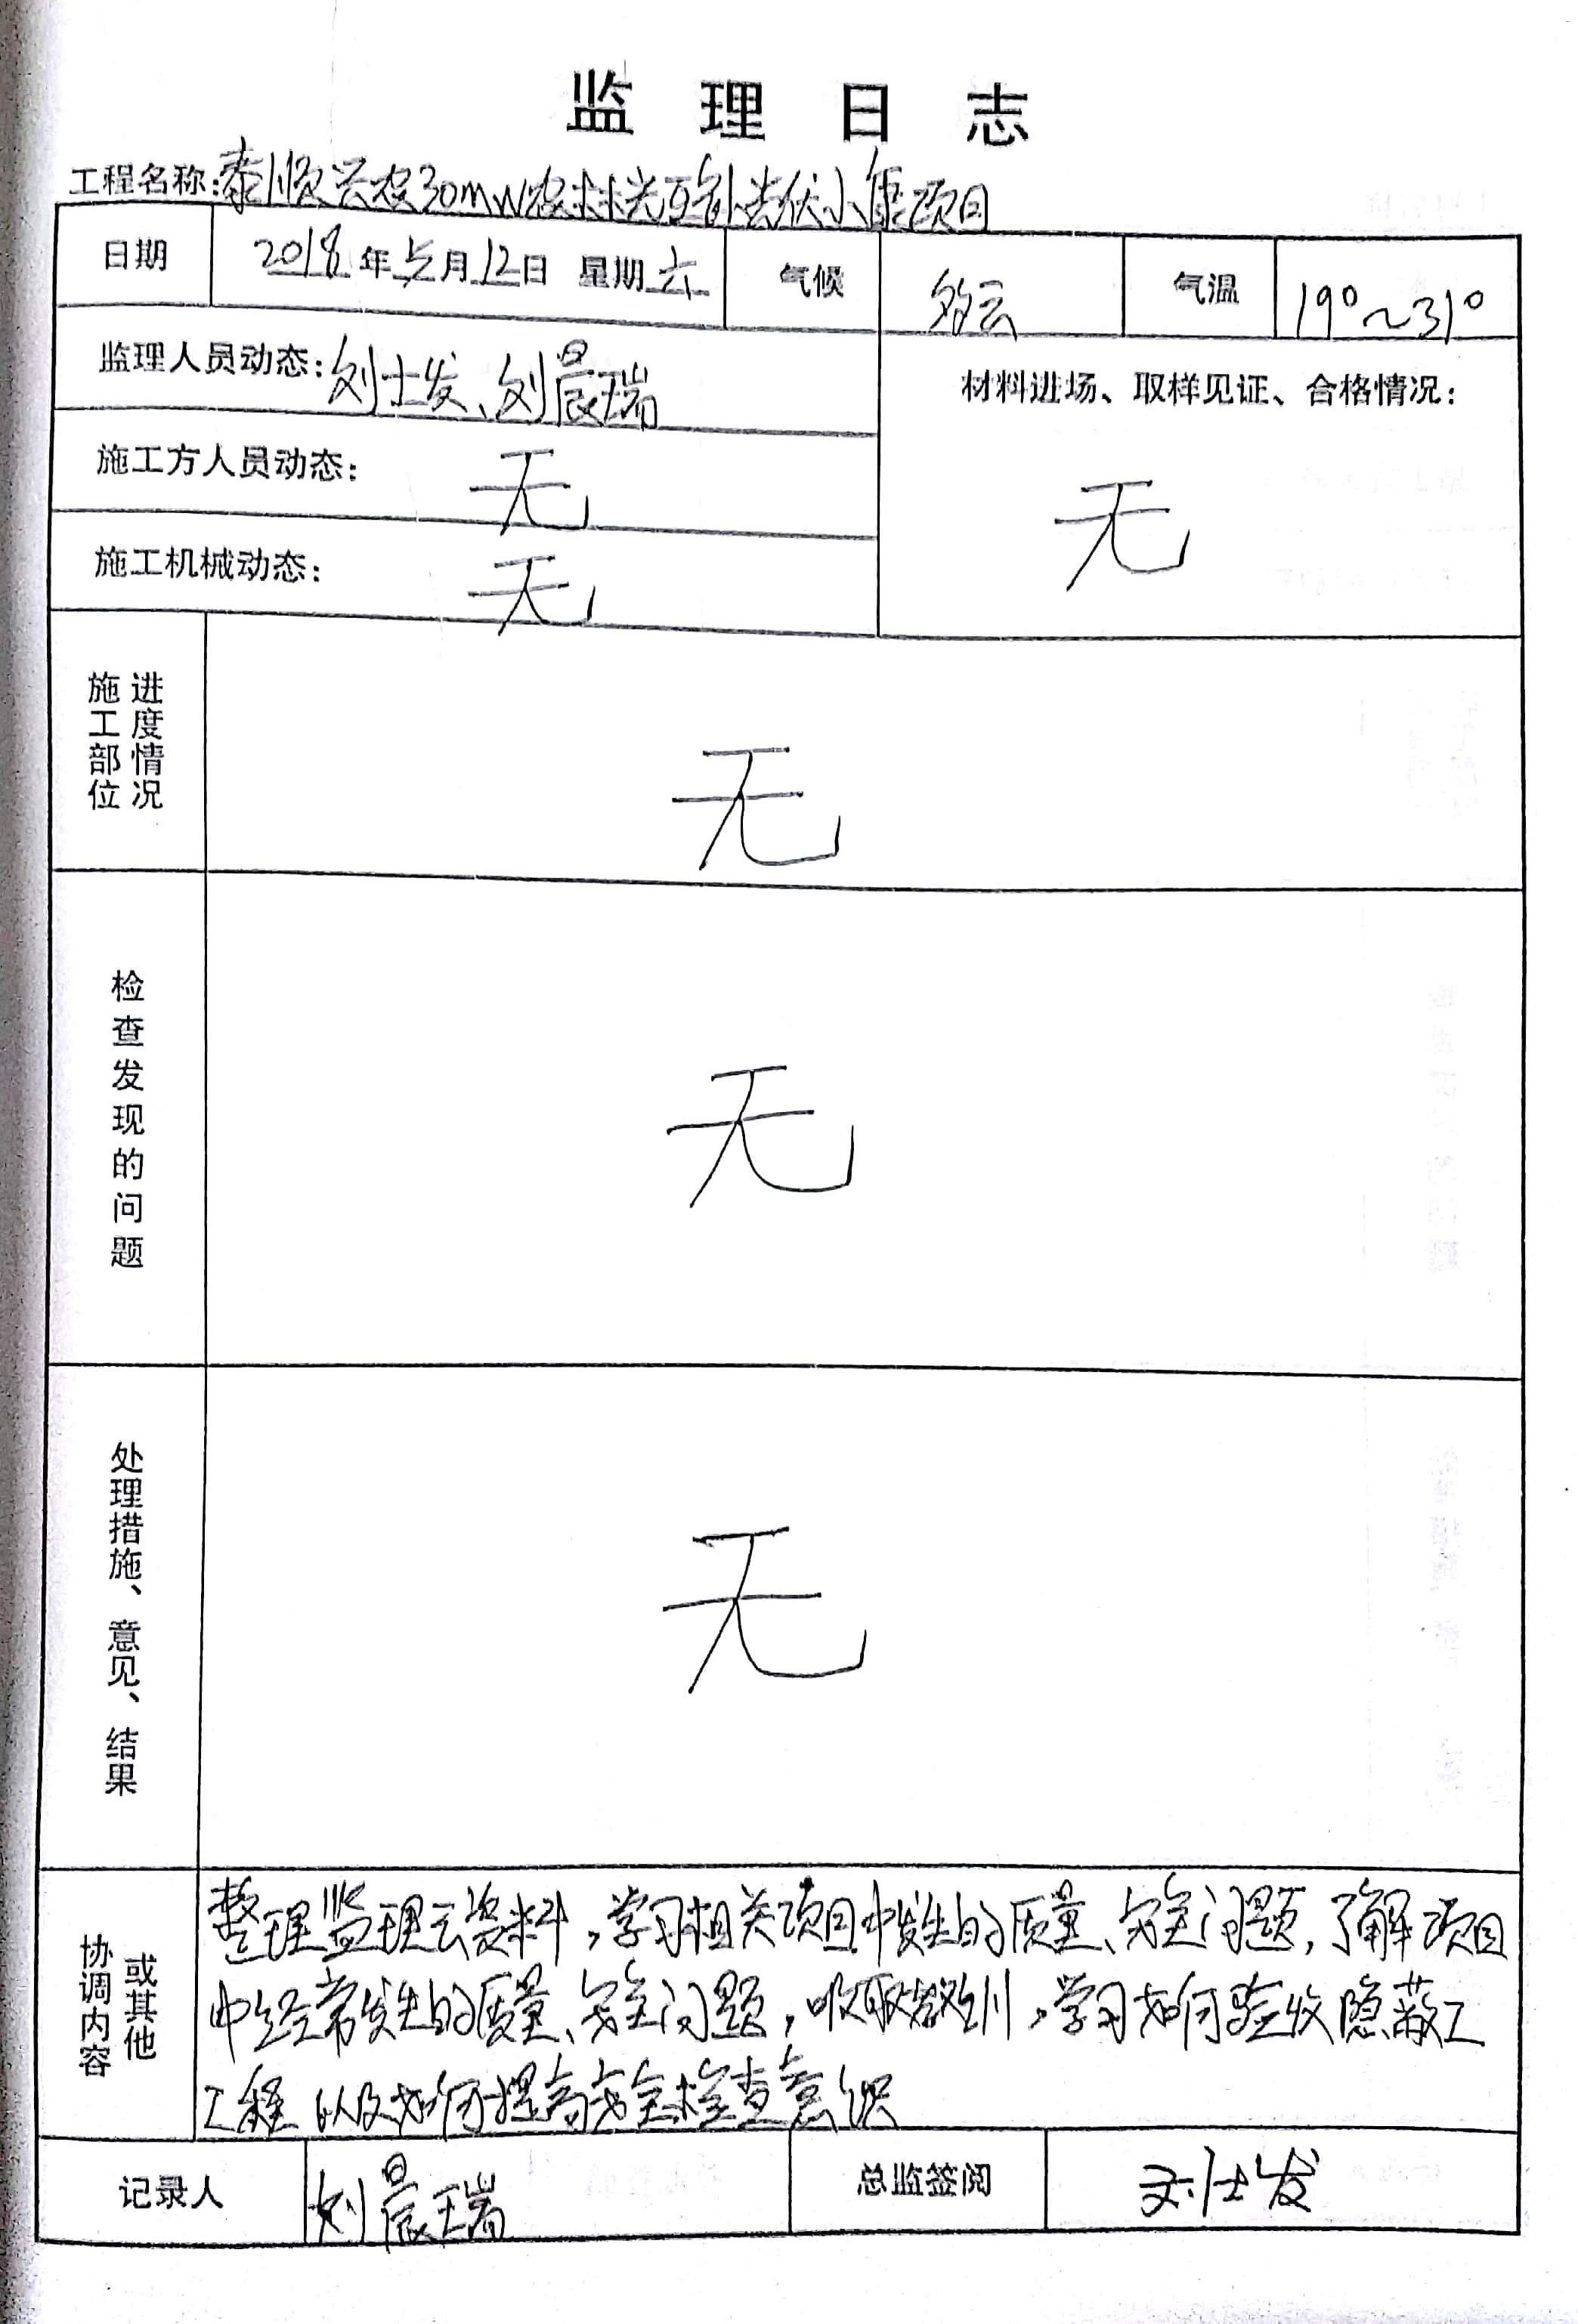 监理日志
工程名称:泰顺兴农30mw农林光互补光伏小康项目
日期 2018年5月12日 星期六 气候 多云 气温 19°~31°
监理人员动态:刘士发、刘晨瑞
材料进场、取样见证、合格情况:
无
施工方人员动态: 无
施工机械动态: 无
施工部位
进度情况
无
检查发现的问题
无
处理措施、意见、结果
无
协调内容
或其他
整理监理云资料,学习相关项目中发生的质量、安全问题,了解项目
中经常发生的质量、安全问题,吸取教训,学习如何验收隐蔽工
工程 以及如何提高安全检查意识
记录人 刘晨瑞 总监签阅 刘仕发